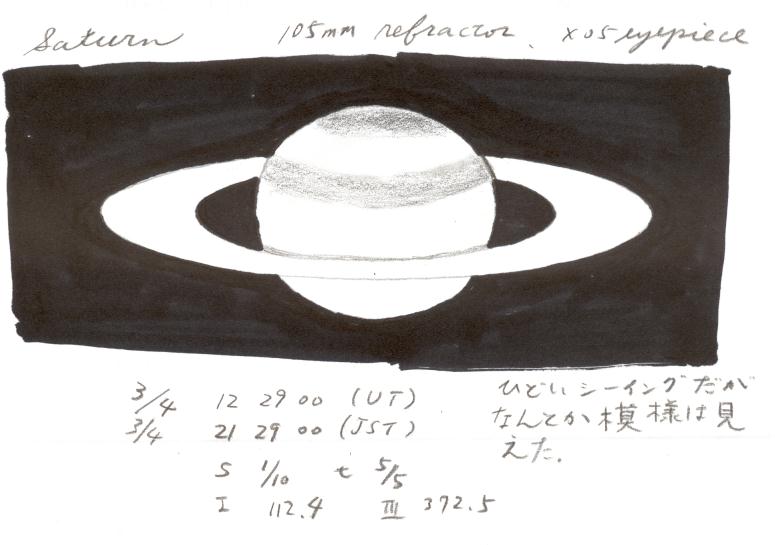 Saturn 105mm refractor. x05 eyepiece
3/4 12 29 00 (UT)
3/4 21 29 00 (JST)
S 1/10 t 5/5
I 112.4 III 372.5
ひどいシーイングだが
なんとか模様は見
えた.